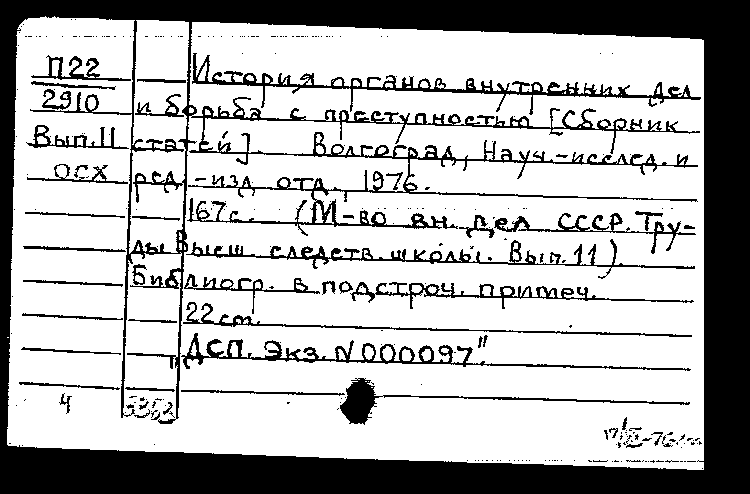 П22 История органов внутренних дел
2910 и борьба с преступностью [Сборник
Вып.11 статей]. Волгоград, Науч.-исслед. и
ОСХ ред.-изд. отд., 1976.
167с. (М-во вн. дел СССР. Тру-
ды Высш. следств. школы. Вып. 11).
Библиогр. в подстроч. примеч.
22 см.
"ДСП. Экз. N 000097".
4